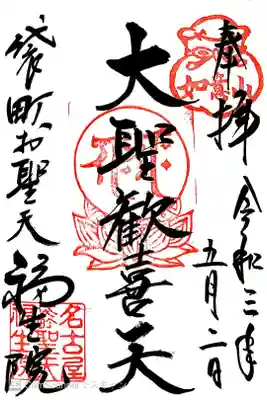 奉拝 令和三年
五月二日
如意山
大聖歓喜天
袋町お聖天
福生院
名古屋
袋聖天
福生院